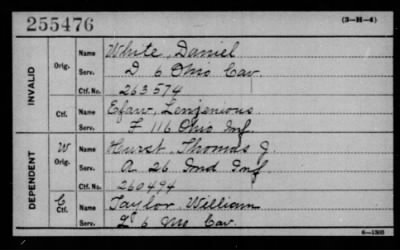 255476 (3-H-4)
INVALID
Orig. Name White, Daniel
Serv. D 6 Ohio Cav.
Ctf. No. 263574
Ctf. Name Efaw,
Serv. F 116 Ohio Inf.
DEPENDENT
W Orig. Name Hurst, Thomas J.
Serv. A 26 Ind Inf
Ctf. No. 260494
C Ctf. Name Taylor, William
Serv. L 6 Mo Cav.